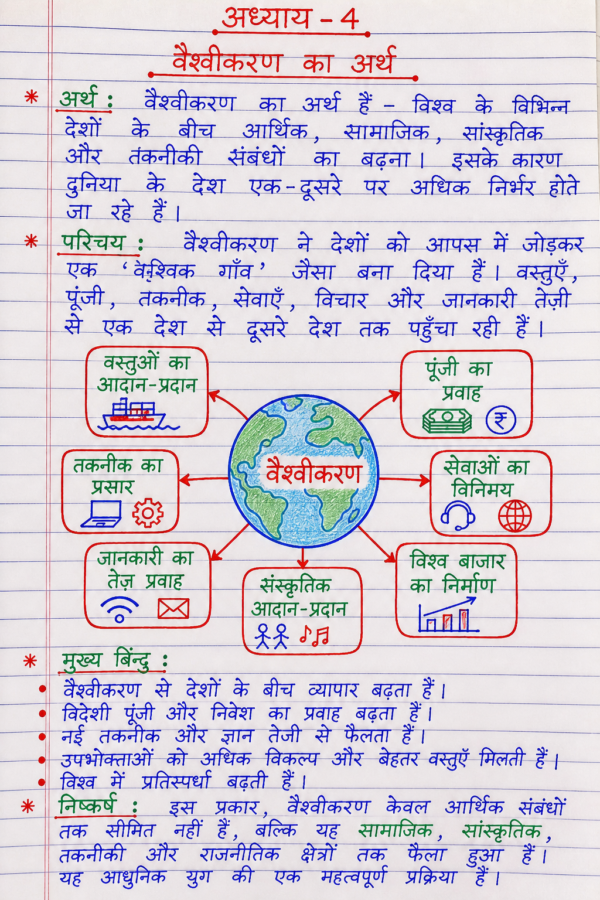 अध्याय - 4
वैश्वीकरण का अर्थ
* अर्थ : वैश्वीकरण का अर्थ हैं - विश्व के विभिन्न
देशों के बीच आर्थिक, सामाजिक, सांस्कृतिक
और तकनीकी संबंधों का बढ़ना। इसके कारण
दुनिया के देश एक-दूसरे पर अधिक निर्भर होते
जा रहे हैं।
* परिचय : वैश्वीकरण ने देशों को आपस में जोड़कर
एक ' गाँव' जैसा बना दिया हैं। वस्तुएँ,
पूंजी, तकनीक, सेवाएँ, विचार और जानकारी तेज़ी
से एक देश से दूसरे देश तक पहुँचा रही हैं।
वस्तुओं का
आदान-प्रदान
पूंजी का
प्रवाह
₹
तकनीक का
प्रसार
वैश्वीकरण
सेवाओं का
विनिमय
जानकारी का
तेज़ प्रवाह
सांस्कृतिक
आदान-प्रदान
विश्व बाजार
का निर्माण
* मुख्य बिंन्दु :
• वैश्वीकरण से देशों के बीच व्यापार बढ़ता हैं।
• विदेशी पूंजी और निवेश का प्रवाह बढ़ता हैं।
• नई तकनीक और ज्ञान तेजी से फैलता हैं।
• उपभोक्ताओं को अधिक विकल्प और बेहतर वस्तुएँ मिलती हैं।
• विश्व में प्रतिस्पर्धा बढ़ती हैं।
* निष्कर्ष : इस प्रकार, वैश्वीकरण केवल आर्थिक संबंधों
तक सीमित नहीं हैं, बल्कि यह सामाजिक, सांस्कृतिक,
तकनीकी और राजनीतिक क्षेत्रों तक फैला हुआ हैं।
यह आधुनिक युग की एक महत्वपूर्ण प्रक्रिया हैं।